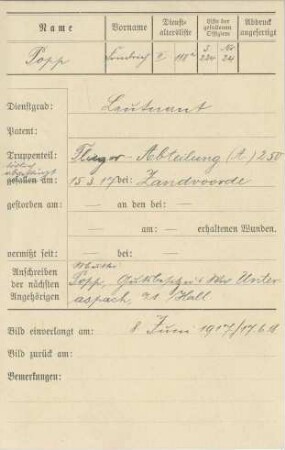 Name Vorname Dienst-altersliste Liste der gefallenen Offiziere Abdruck angefertigt
Popp Friedrich
Dienstgrad: Leutnant
Patent:
Truppenteil: Flieger-Abteilung (A.) 250
tödlich
gefallen am: 15.3.17 bei: Zandvoorde
gestorben am: — an den bei: —
— am: — erhaltenen Wunden.
vermißt seit: — bei: —
Anschreiben der nächsten Angehörigen
Popp, Gutsbesitzer Unter-
aspach, Hall
Bild einverlangt am: 8. Juni 1917/17.6.
Bild zurück am:
Bemerkungen: